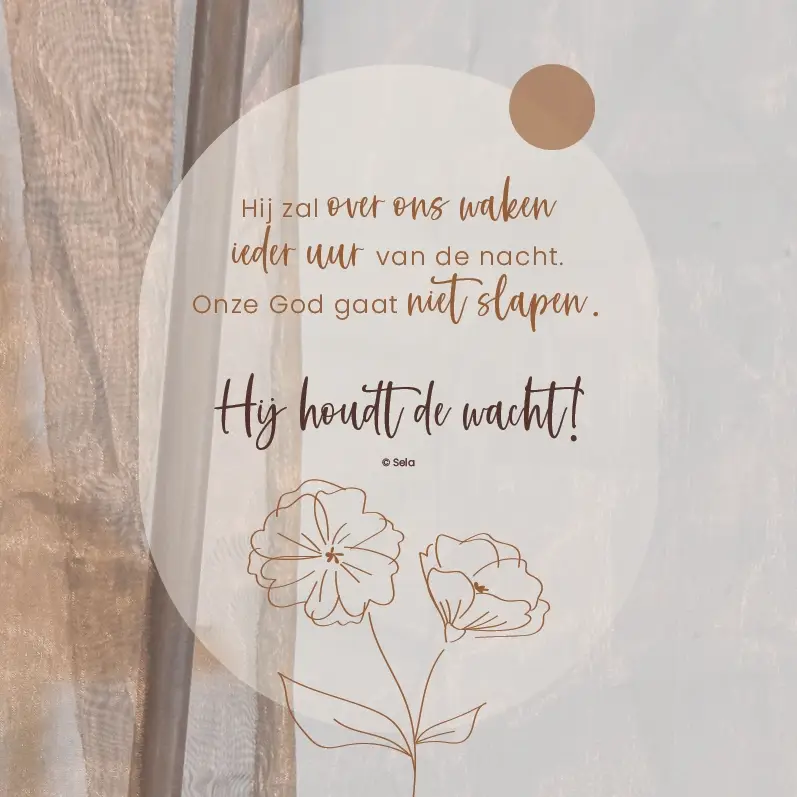 Hij zal over ons waken
ieder uur van de nacht.
Onze God gaat niet slapen.
Hij houdt de wacht!
© Sela